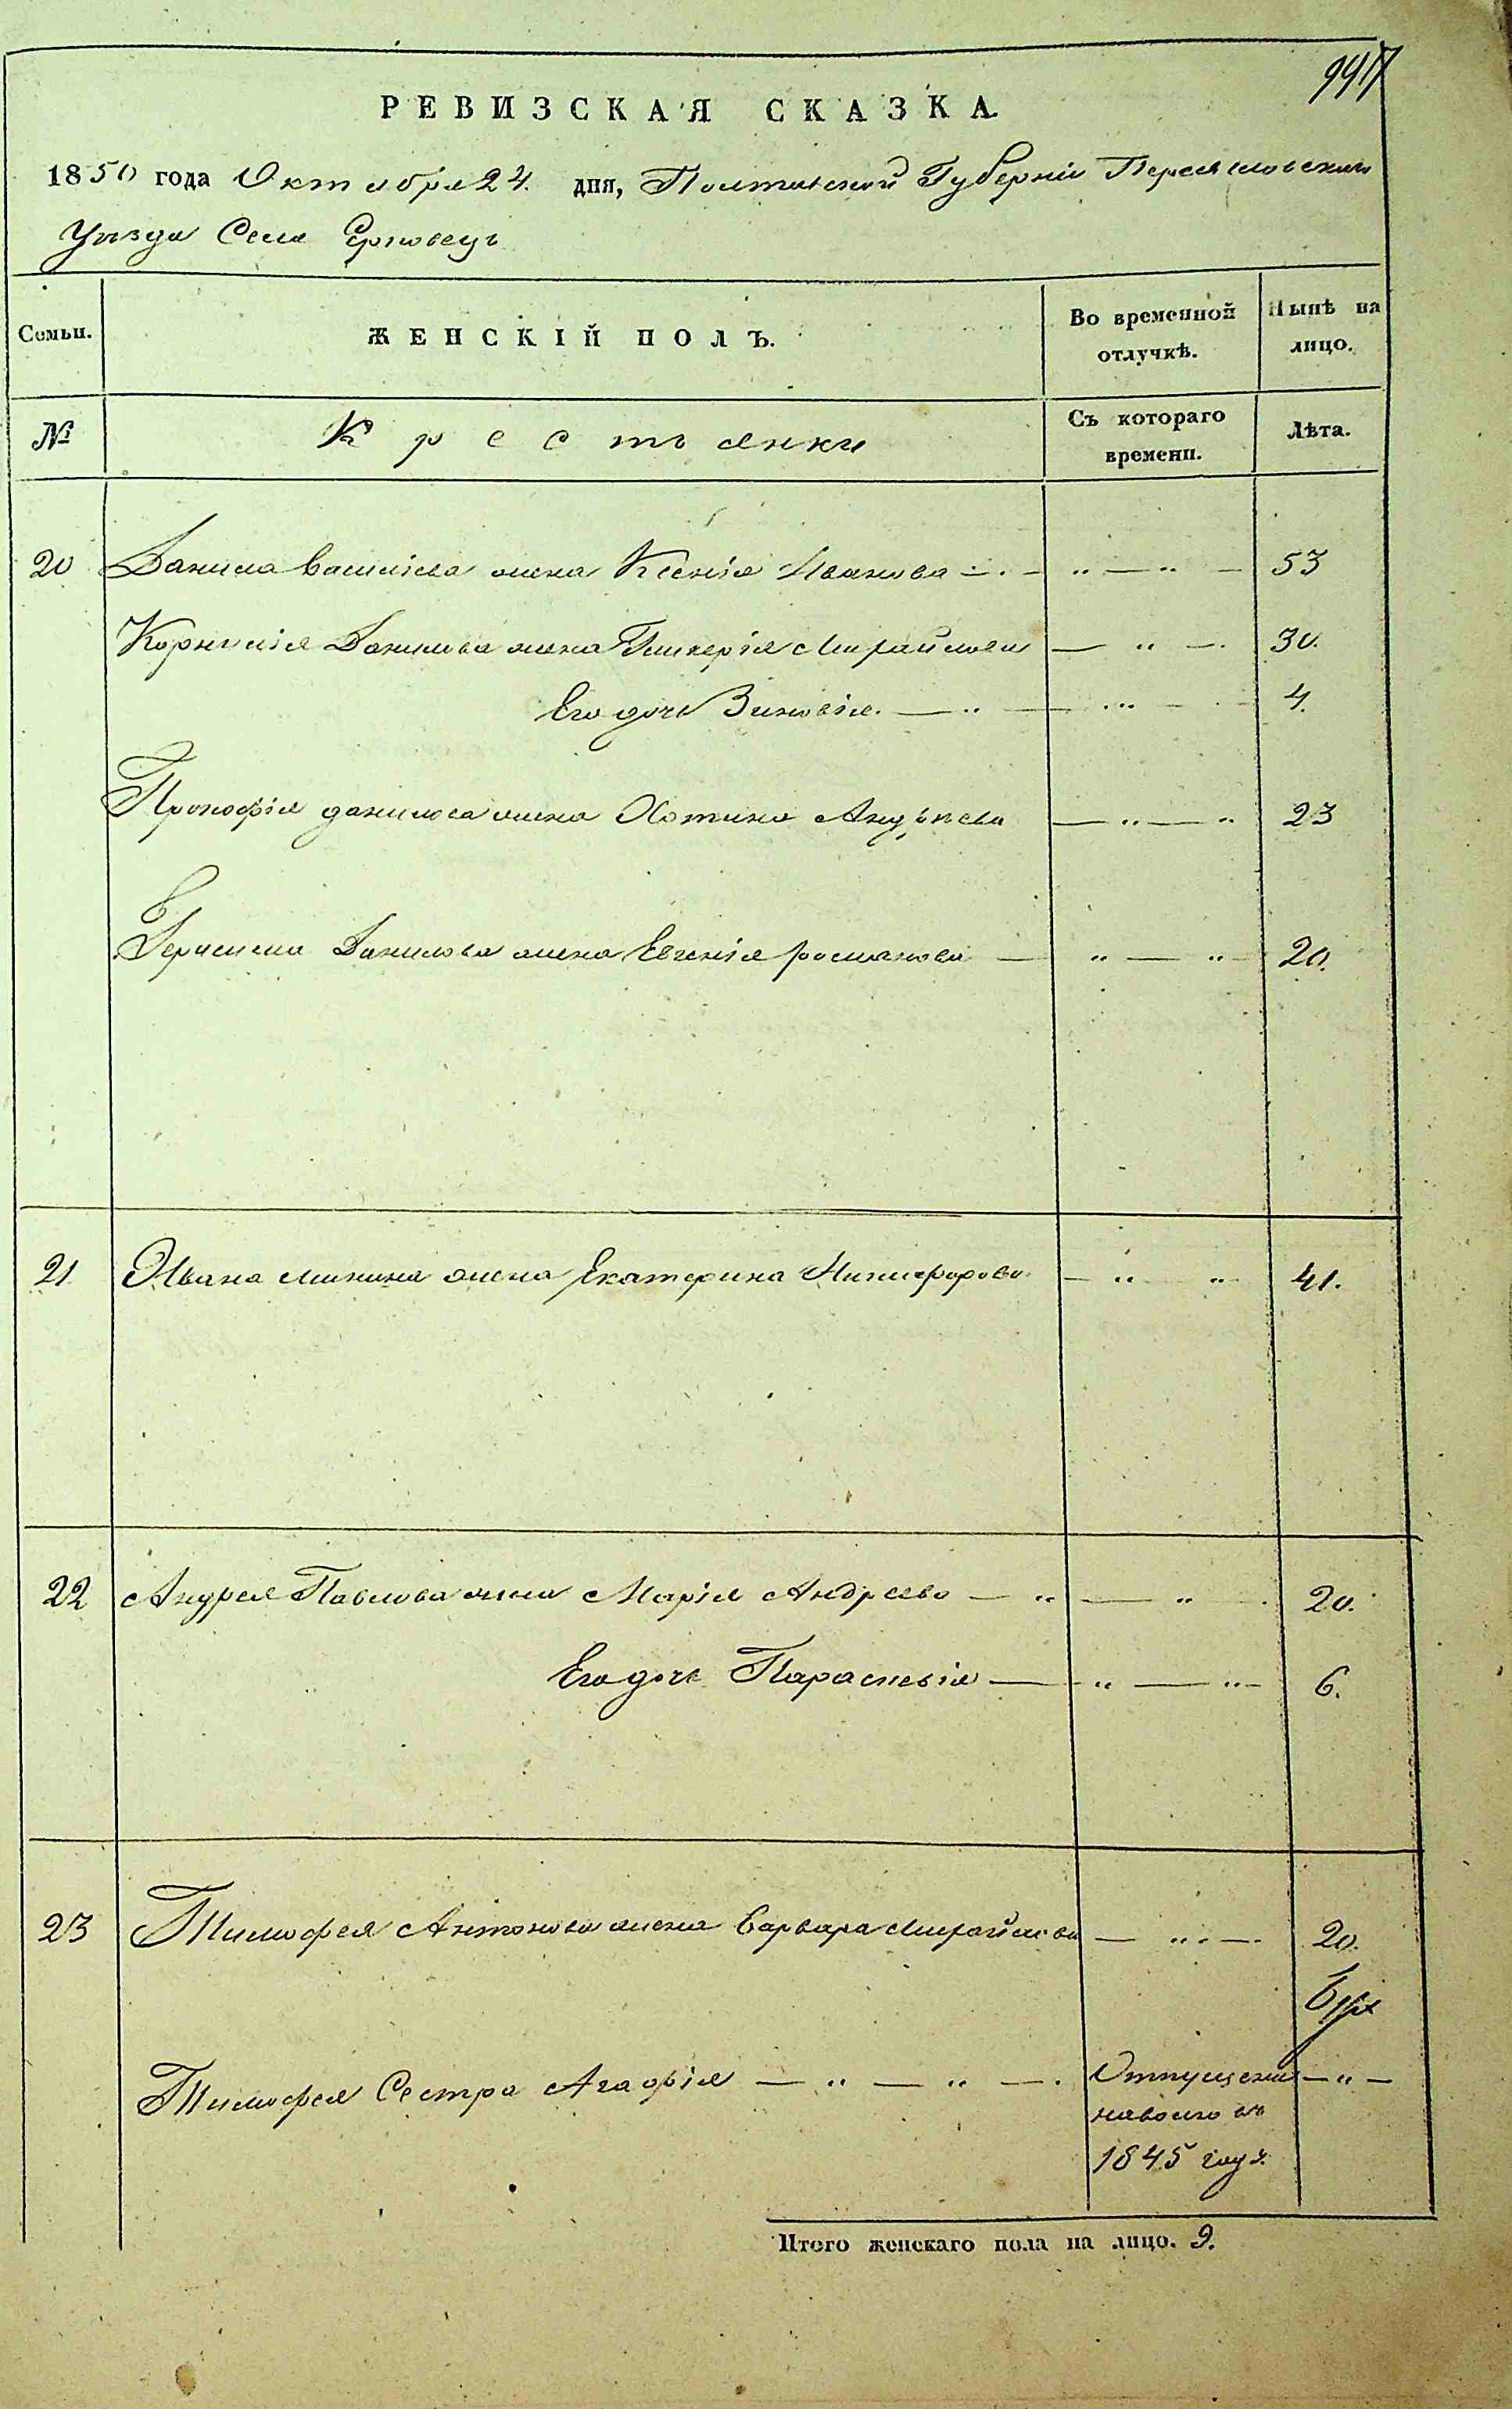 РЕВИЗСКАЯ СКАЗКА
1850 года Октября 24. дня, Полтавской Губерніи Переяславскаго
Уѣзда Села Ерковецъ
Семьи. ЖЕНСКІЙ ПОЛЪ. Во временной отлучкѣ. Нынѣ на лицо.
№ Крестьянки Съ котораго времени. Лѣта.
20 Данила Василіева жена Ксенія Иванова — „ — „ — 53
Корнилія Данилова жена Гликерія Михайлова — „ — 30.
Его дочь Зиновія. — „ — „ — 4.
Прокофія Данилова жена Хотина Андрѣева — „ — „ 23
Герасима Данилова жена Евгенія Романова — „ — „ — 20.
21 Ивана Минина жена Екатерина Никифорова — „ — „ 41.
22 Андрея Павлова жена Марія Андреева — „ — „ 20.
Его дочь Параскевія — „ — „ — 6.
23 Тимофея Антонова жена Варвара Михайлова — „ — 20.
Тимофея Сестра Агафія — „ — „ — . Отпущена — „ —
на волю въ
1845 году.
Итого женскаго пола на лицо. 9.